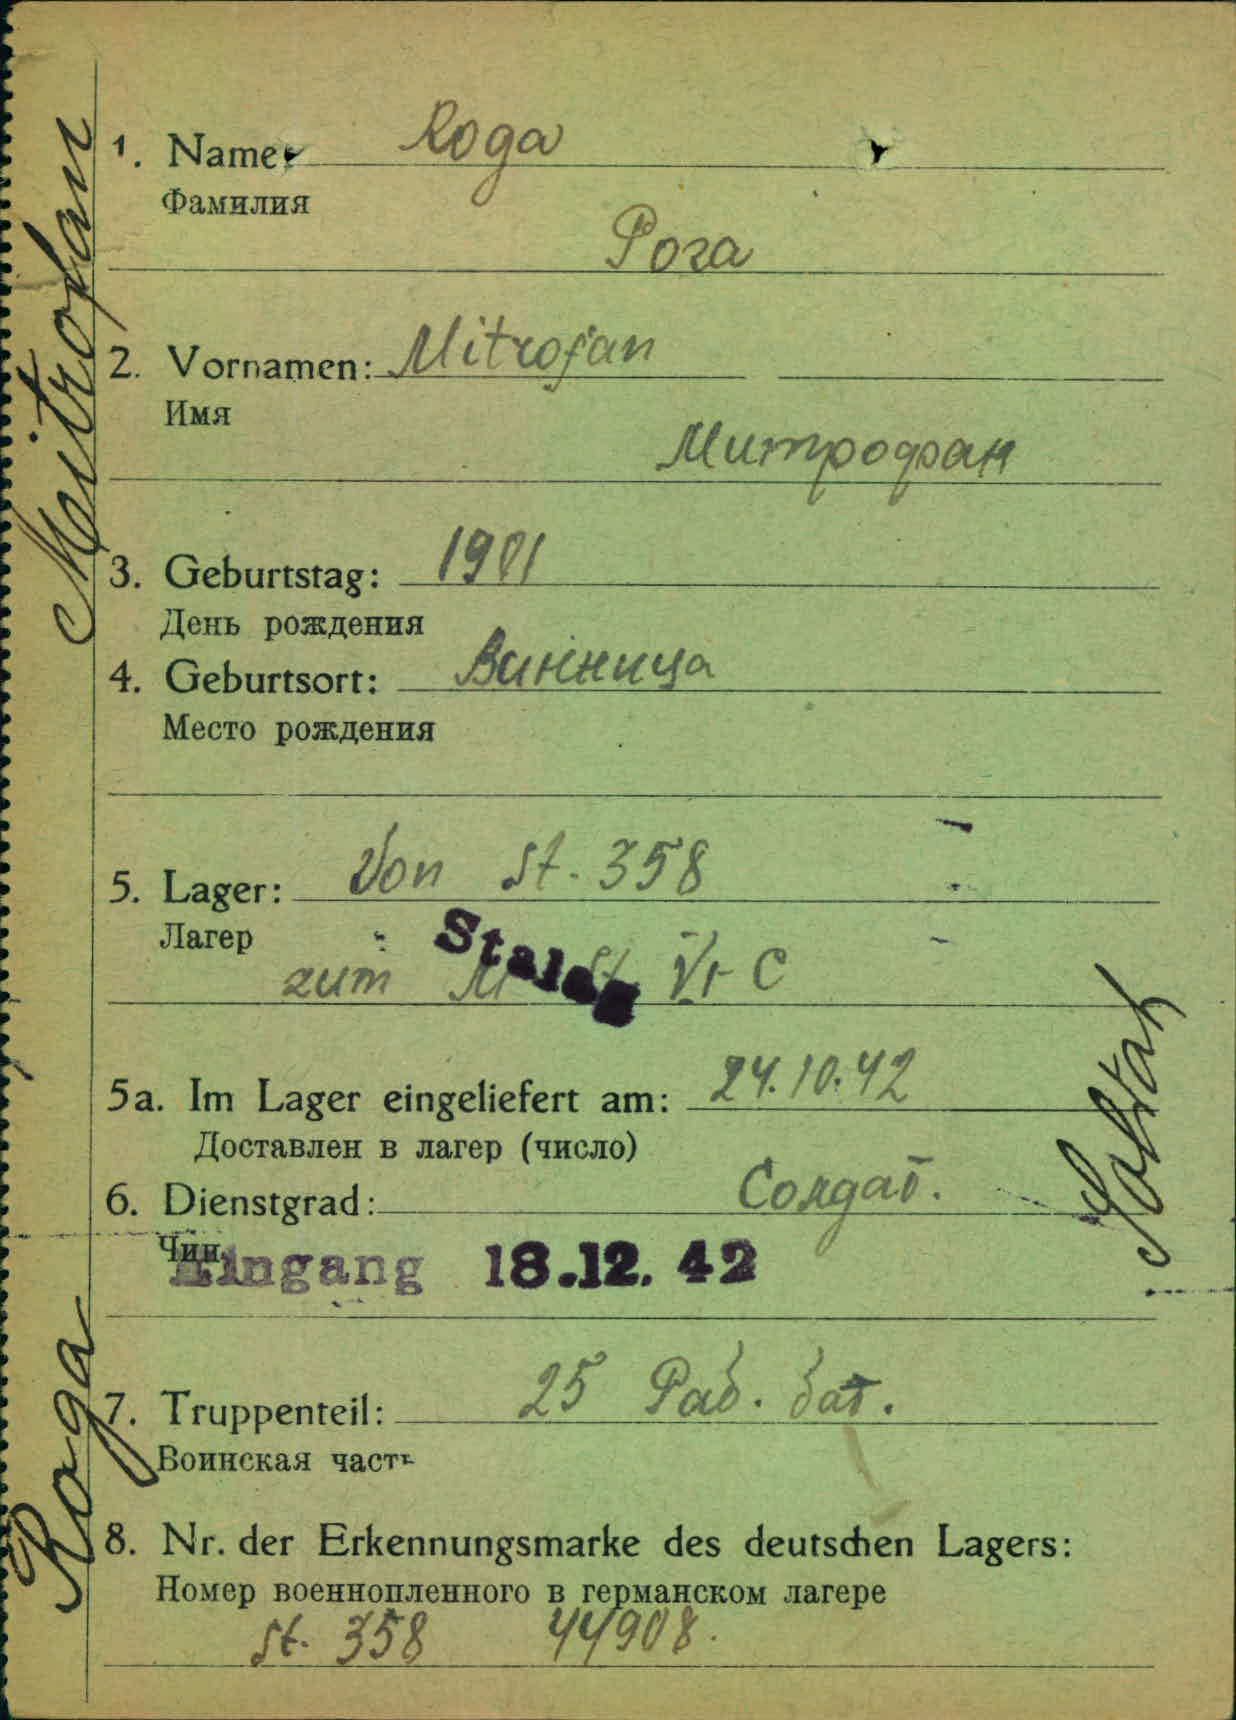 1. Name: Roga
Фамилия
Рога
2. Vornamen: Mitrofan
Имя
Митрофан
3. Geburtstag: 1901
День рождения
4. Geburtsort: Винница
Место рождения
5. Lager: Von St. 358
Лагер
Stalag
zum St. VI C
5a. Im Lager eingeliefert am: 24.10.42
Доставлен в лагер (число)
6. Dienstgrad: Солдат.
Чин
Eingang 18.12.42
7. Truppenteil: 25 Раб. бат.
Воинская часть
8. Nr. der Erkennungsmarke des deutschen Lagers:
Номер военнопленного в германском лагере
St. 358 44908.
Roga Mitrofan
Soldat